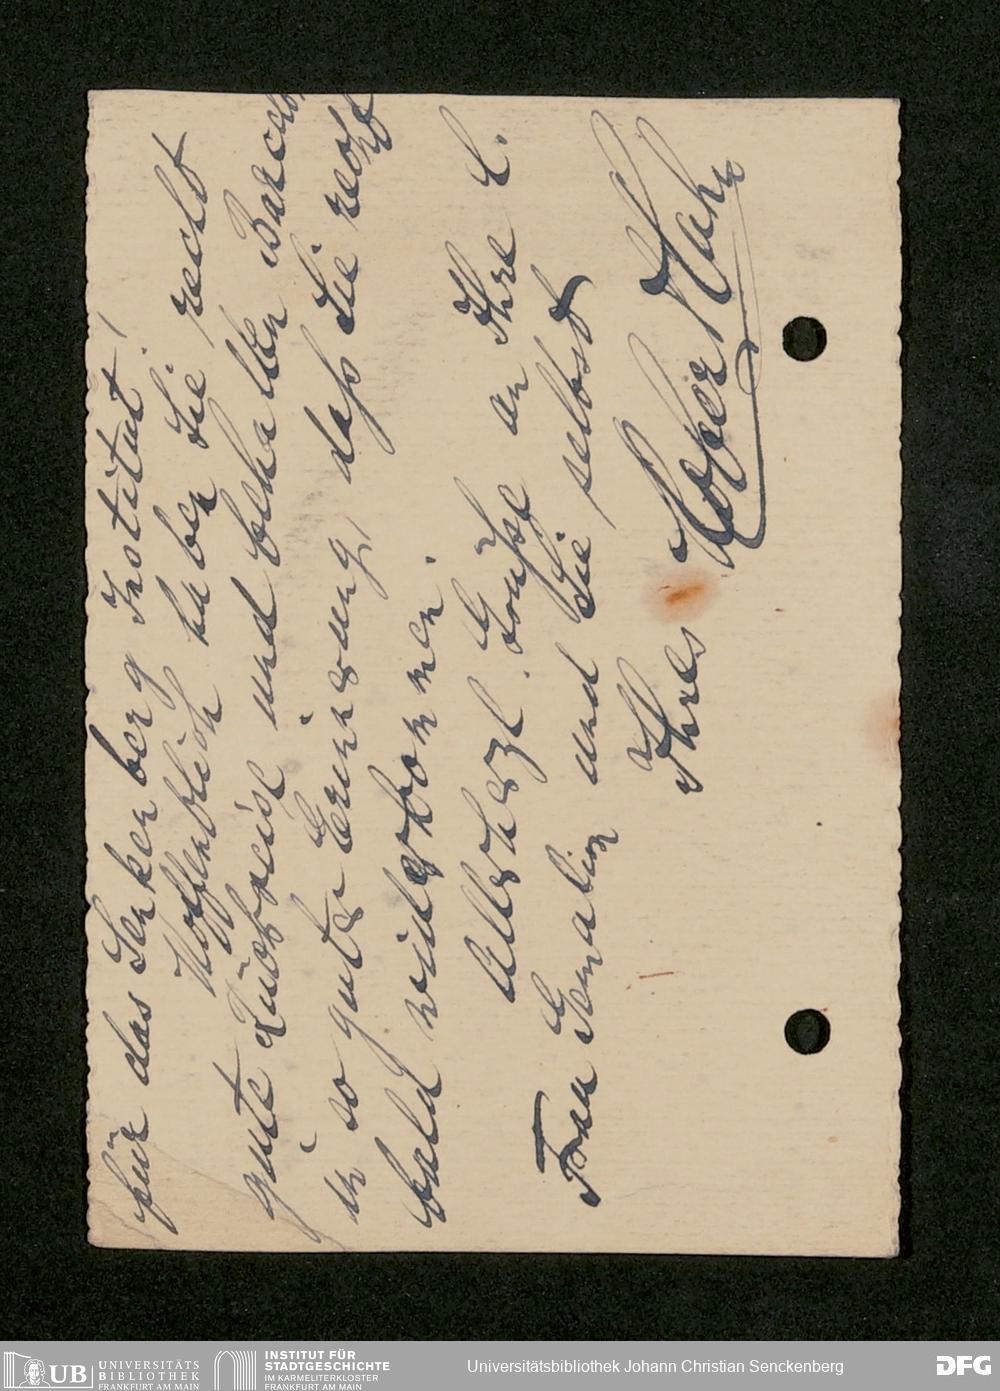 für das Senkenberg Institut!
Hoffentlich haben Sie recht
gute Rückreise und behalten Barcelona
in so guter Erinnerung, daß Sie recht
bald wiederkommen.
Allerherzl. Grüße an Ihre l.
Frau Gemalin und Sie selbst
Ihres
UB UNIVERSITÄTS
BIBLIOTHEK
FRANKFURT AM MAIN
INSTITUT FÜR
STADTGESCHICHTE
IM KARMELITERKLOSTER
FRANKFURT AM MAIN
Universitätsbibliothek Johann Christian Senckenberg
DFG